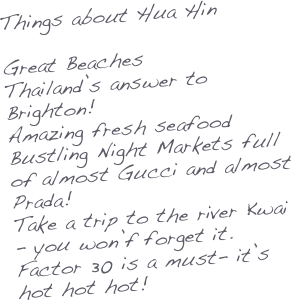 Things about Hua Hin
Great Beaches
Thailand's answer to
Brighton!
Amazing fresh seafood
Bustling Night Markets full
of almost Gucci and almost
Prada!
Take a trip to the river Kwai
- you won't forget it.
Factor 30 is a must- it's
hot hot hot!